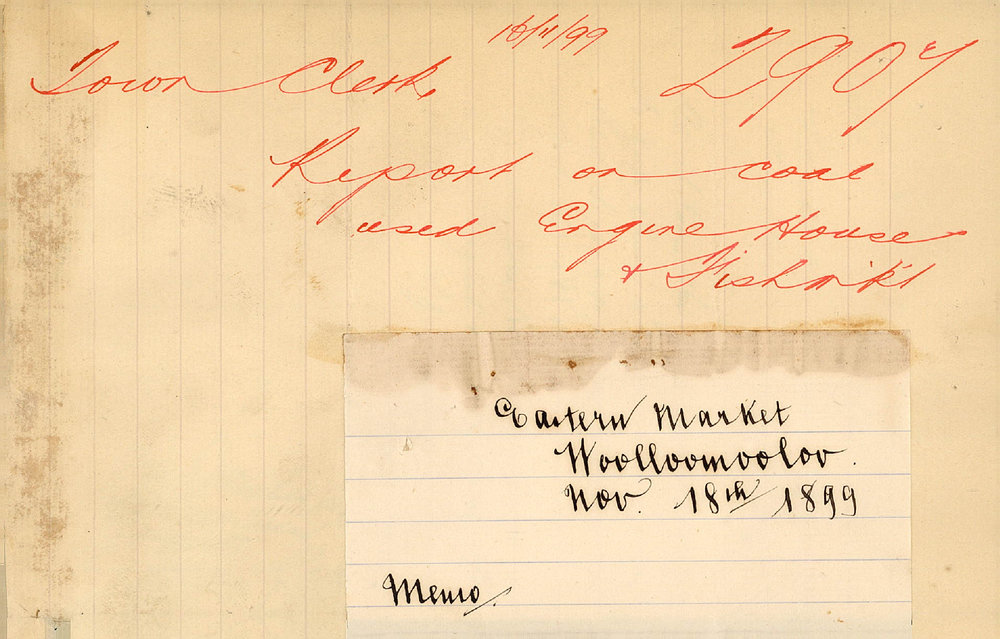 18/11/99
Town Clerk, 2907
Report on coal
used Engine House
& Fishmkt
Eastern Market
Woolloomooloo.
Nov. 18th/ 1899
Memo/